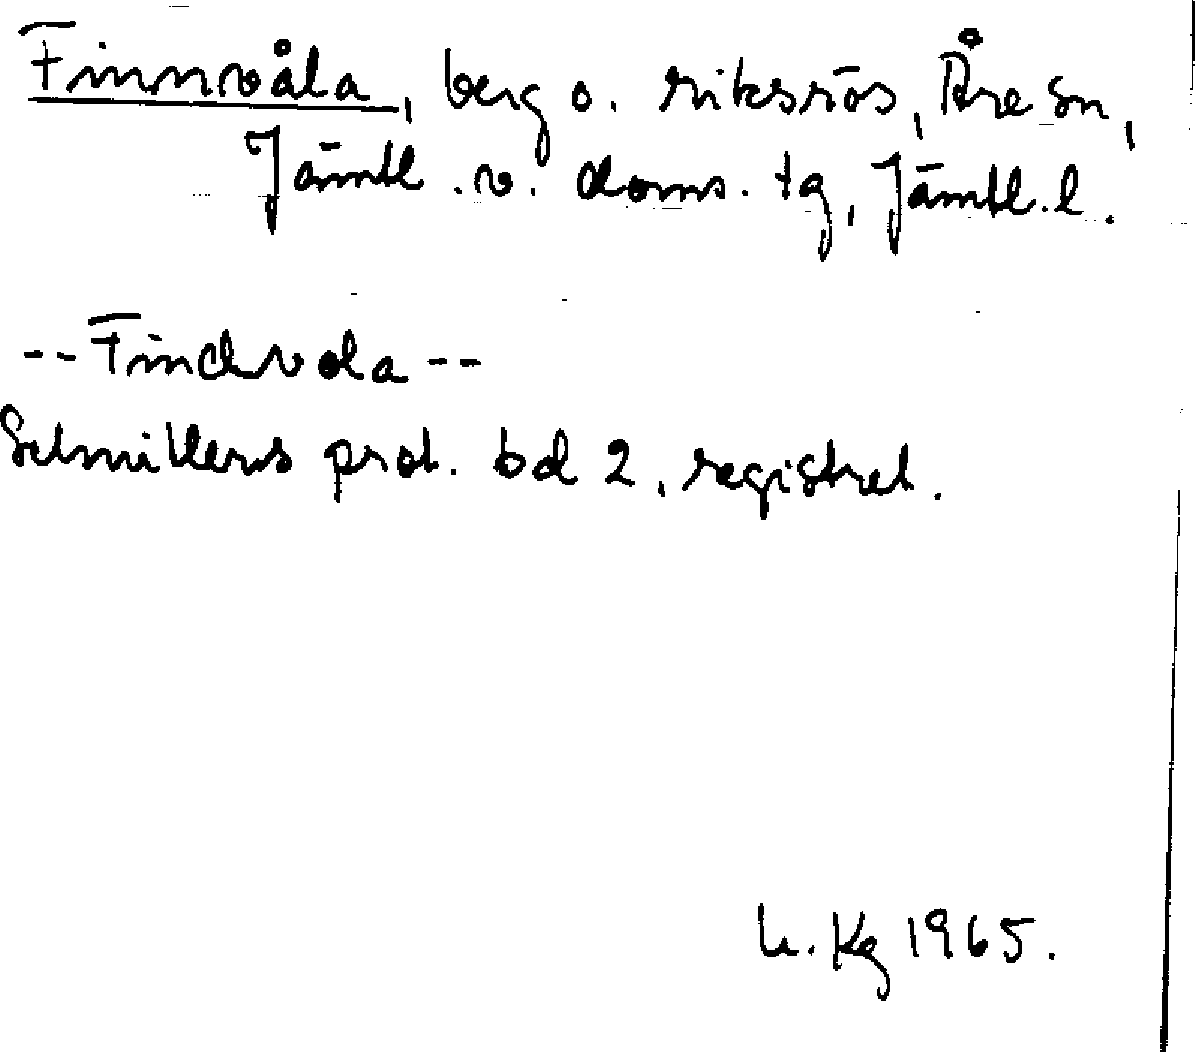 Finnvåla, berg o. riksrös, Åre sn,
Jämtl. v. doms. tg, Jämtl. l.
-- Findvola --
Schnitlers prot. bd 2, registret.
Kg 1965.